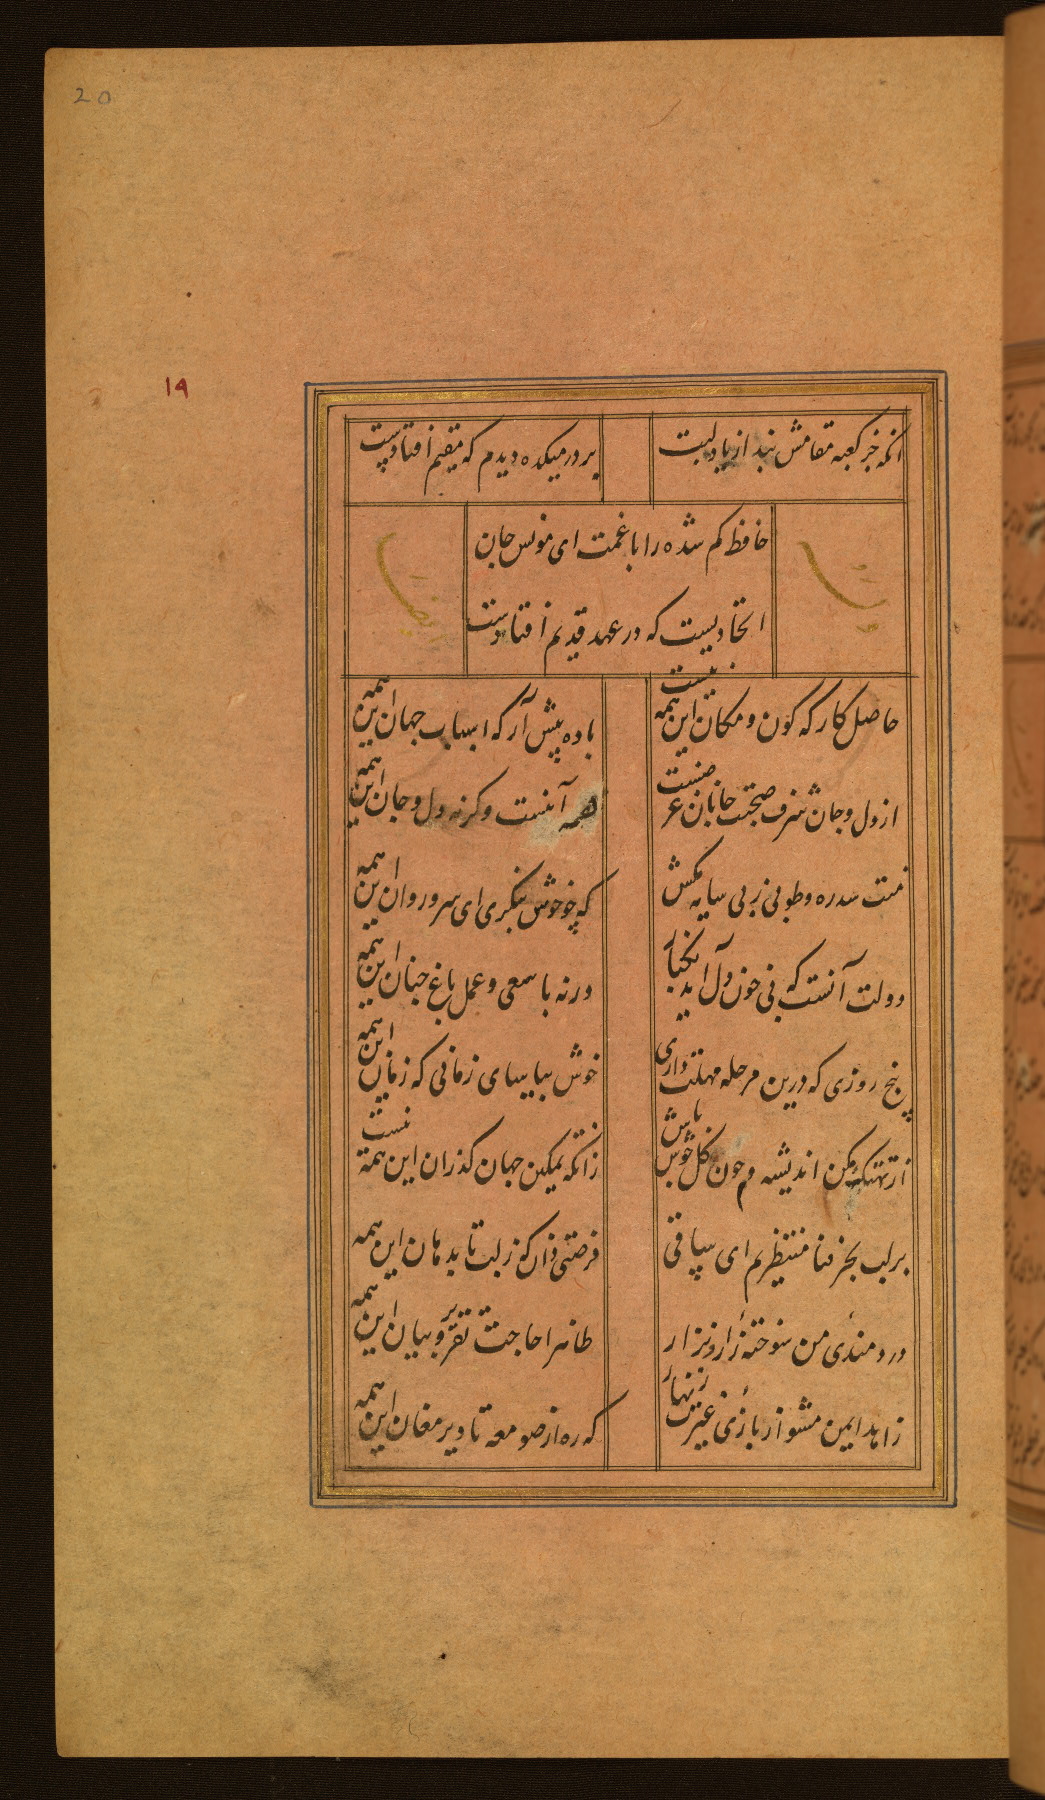 20
۱۹
آنکه جز کعبه مقامش نبد از یاد لبت
بر در میکده دیدم که مقیم افتادست
حافظ گم شده را با غمت ای مونس جان
اتحادیست که در عهد قدیم افتادست
حاصل کارکه کون و مکان این همه نیست
باده پیش آر که اسباب جهان این همه
از دل و جان شرف صحبت جانان غرضست
همه آنست وکرنه دل و جان این همه
منت سدره و طوبی ز پی سایه مکش
که چو خوش بنکری ای سرو روان این همه
دولت آنست که بی خون دل آید بکنار
ورنه با سعی و عمل باغ جنان این همه
پنج روزی که درین مرحله مهلت داری
خوش بیاسای زمانی که زمان این همه
از تهتک مکن اندیشه و چون کل خوش باش
زانکه تمکین جهان کذران این همه نیست
بر لب بحر فنا منتظریم ای ساقی
فرصتی دان که ز لب تا بدهان این همه
دردمندی من سوخته زار و نزار
ظاهرا حاجت تقریر و بیان این همه
زاهد ایمن مشو از بازی غیرت زنهار
که ره از صومعه تا دیر مغان این همه